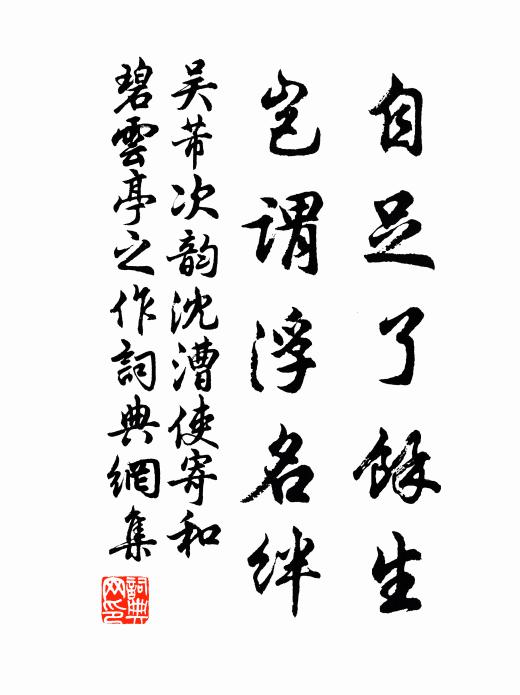 自足了餘生
豈謂浮名絆
吴芾次韵沈漕使寄和
碧雲亭之作詞典網集
詞典网印